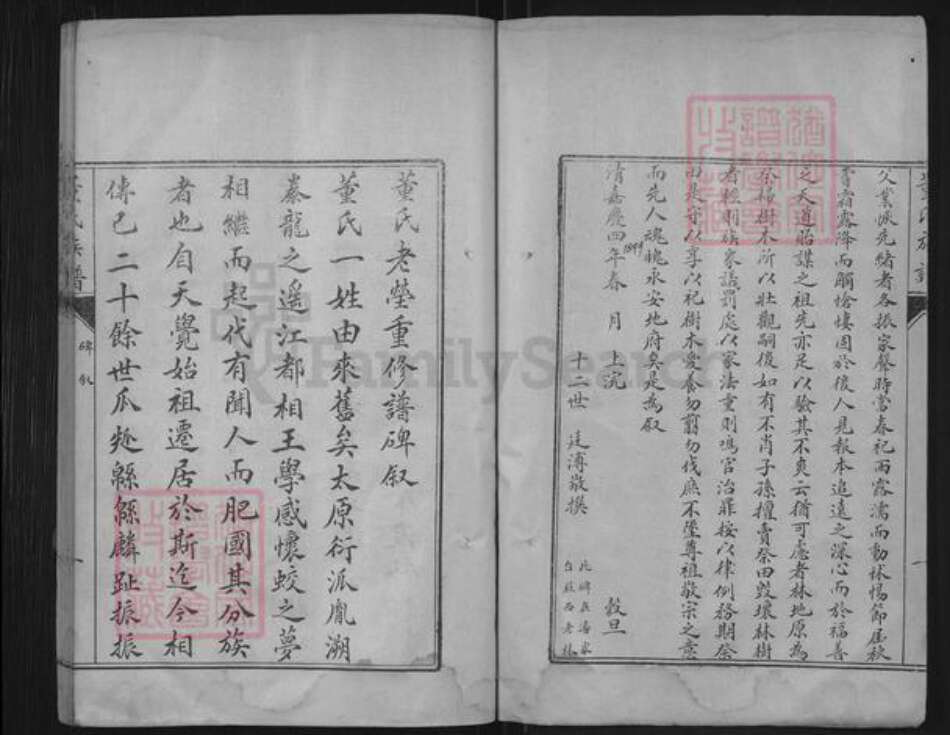 久業恢先緒者各振家聲時當春祀雨露濡而動怵惕節屆秋
霜露降而觸愴悽固於後人見報本追遠之深心而於福善
之天道貽謀之祖先亦足以驗其不爽云猶可慮者林地原為
祭掃樹木所以壯觀嗣後如有不肖子孫擅賣祭田毀壞林樹
者輕則族眾議罰處以家法重則鳴官治罪按以律例務期祭
田是守以享以祀樹木愛養勿翦勿伐庶不墜尊祖敬宗之意
而先人魂魄永安地府矣是為叙
清嘉慶四年春 月 上浣 穀旦
1799
十二世 廷溥敬撰
此碑在
台莊西老林
董氏族譜
董氏老塋重修譜碑叙
董氏一姓由來舊矣太原衍派胤溯
豢龍之遥江都相王學感懷蛟之夢
相繼而起代有聞人而肥國其分族
者也自天覺始祖遷居於斯迄今相
傳已二十餘世瓜瓞緜緜麟趾振振
董氏族譜
碑叙
FamilySearch